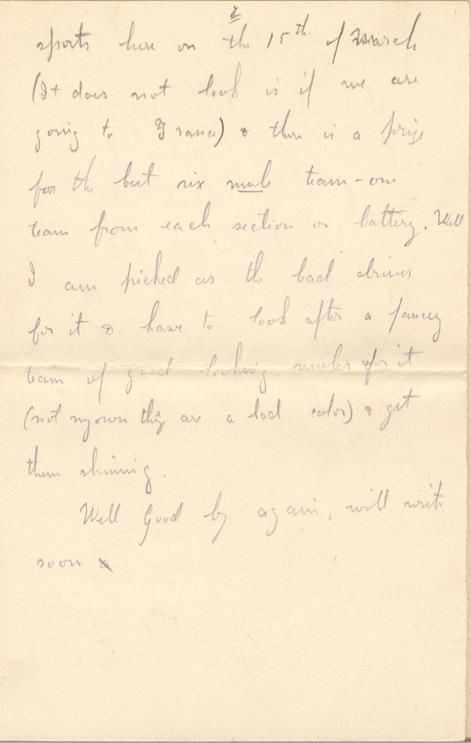 sports here on the 15th of March
(It does not look is if we are
going to France) & there is a prize
for the best six mule team - one
team from each section or battery. Well
I am picked as the lead driver
for it & have to look after a fancy
team of good looking mules for it
(not my own they are a bad color) & get
them shining.
Well Good by again, will write
soon